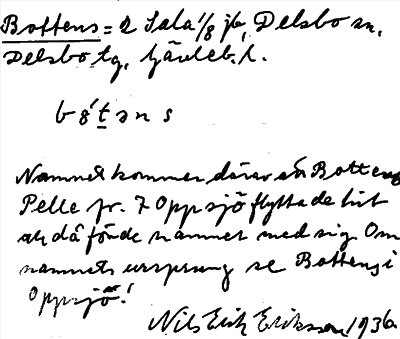 Bottens = 2 Sala 1/8 jb, Delsbo sn,
Delsbo tg, Gävleb. l.
bɞ́təns
Namnet kommer därav att Bottens
Pelle fr. 7 Oppsjö flyttade hit
och då förde namnet med sig. Om
namnets ursprung se Bottens i
Oppsjö!
Nils Erik Eriksson 1936